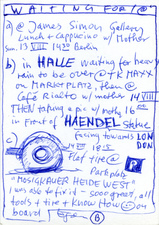 WAITING FOR/@
a) @ James Simon Gallery
Lunch + Cappucino w/ Mother
Sun. 13 VIII 1430 Berlin
b) in HALLE waiting for heavy
rain to be over @ TK MAXX
on MARKTPLATZ, then @
Café Rialto w/ mother 14 VIII
THEN taking a pic w/ mothy 16
in front of HAENDEL Statue
Facing towards LON
DON
c)
14 VIII
Flat tire @
Parkplatz
"MOSIGKAUER HEIDE WEST"
I was able to fix it - sooo great, all
tools + tire + know How on
board
6